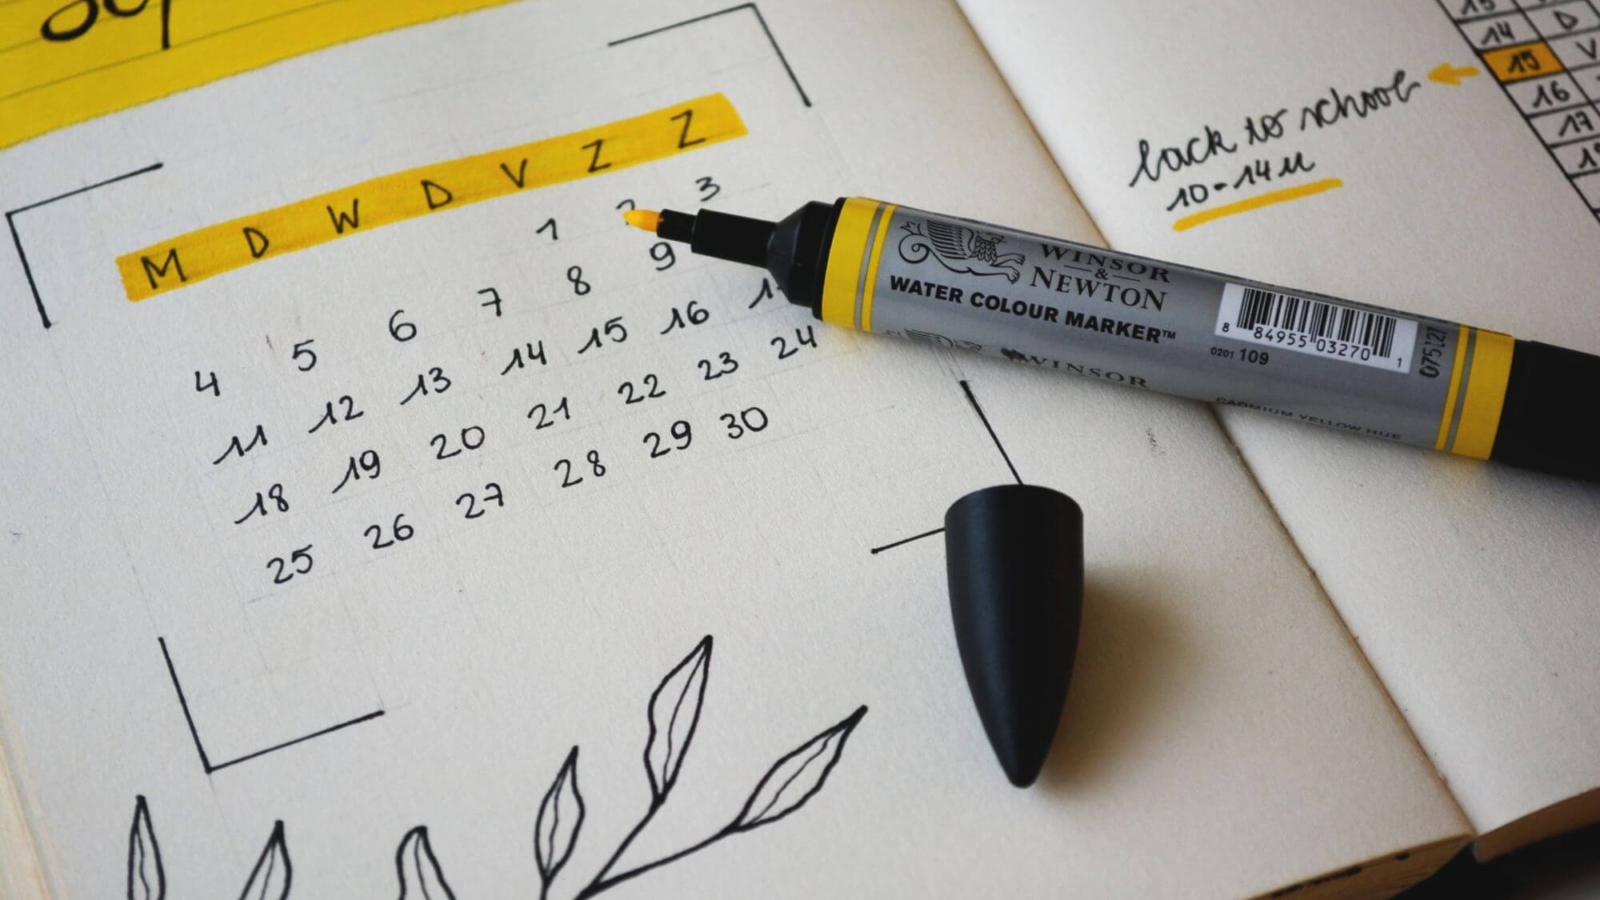 Sep
M D W D V Z Z
1 2 3
4 5 6 7 8 9
11 12 13 14 15 16
18 19 20 21 22 23 24
25 26 27 28 29 30
back to school
10-14u
14 D
15 V
16
17
WINSOR
&
NEWTON
WATER COLOUR MARKER™
8 84955 03270 1
0201 109
075127
WINSOR
CADMIUM YELLOW HUE